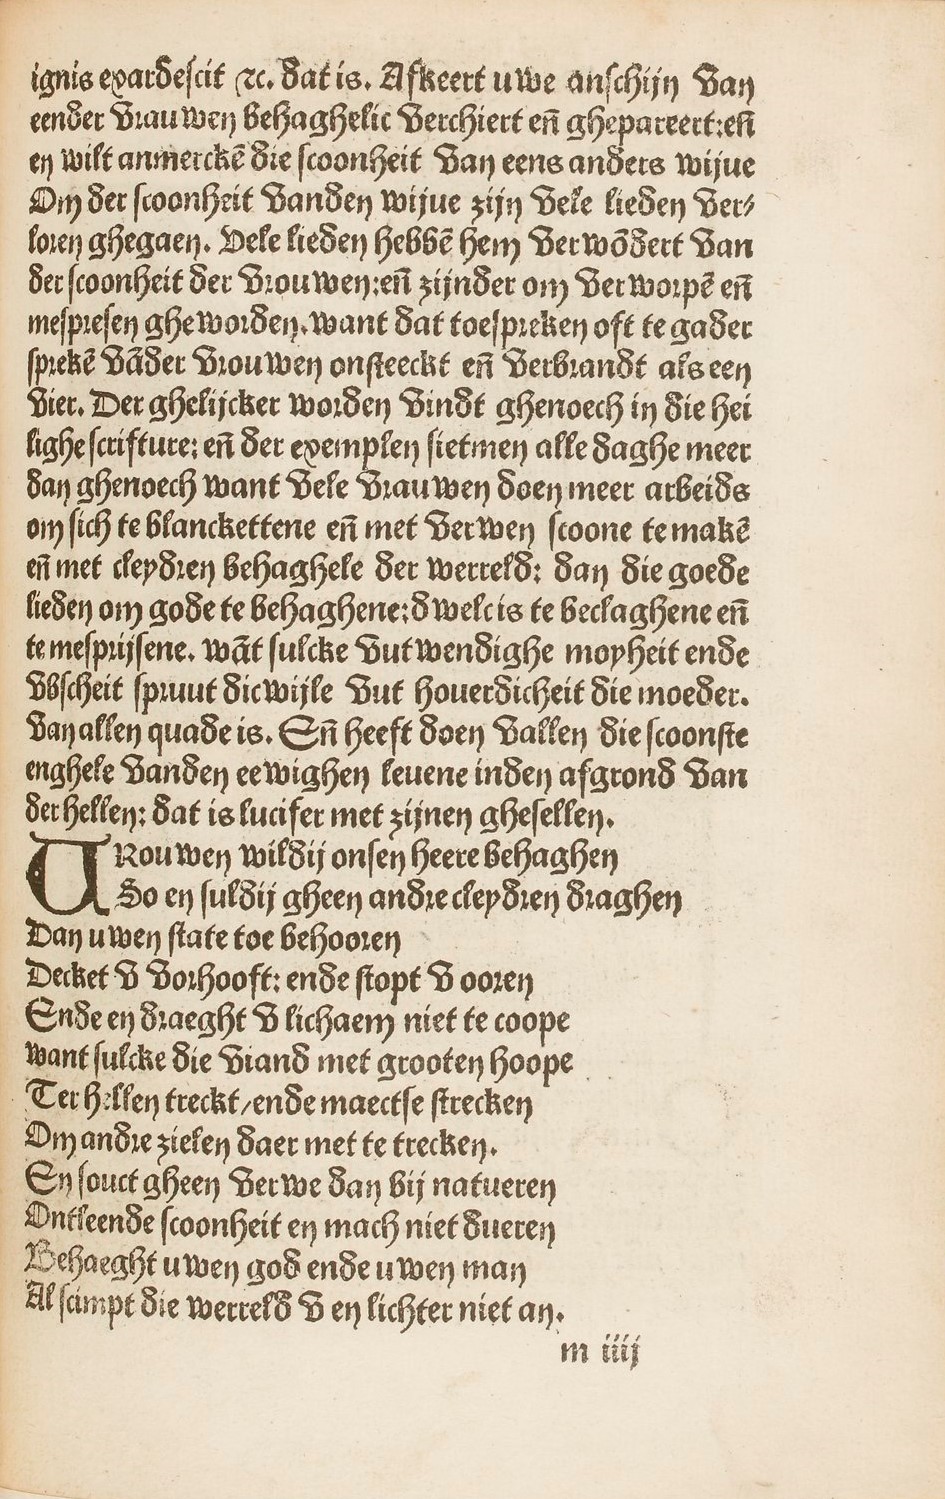 ignis exardescit ⁊c. dat is. Afkeert uwe anschijn van
eender vrauwen behaghelic verchiert en̄ ghepareert:en̄
en wilt anmerckē die scoonheit van eens anders wijue
Om der scoonheit vanden wijue zijn vele lieden ver⸗
loren ghegaen. Vele lieden hebbē hem verwōdert van
der scoonheit der vrouwen:en̄ zijnder om verworpē en̄
mespresen gheworden. want dat toespreken oft te gader
sprekē vāder vrouwen onsteeckt en̄ verbrandt als een
vier. Der ghelijcker worden vindt ghenoech in die hei
lighe scrifture: en̄ der exemplen sietmen alle daghe meer
dan ghenoech want vele vrauwen doen meer arbeids
om sich te blanckettene en̄ met verwen scoone te makē
en̄ met cleydren behaghele der werreld: dan die goede
lieden om gode te behaghene:dwelc is te beclaghene en̄
te mesprijsene. wāt sulcke vutwendighe moyheit ende
vbscheit spruut dicwijle vut houerdicheit die moeder.
van allen quade is. En̄ heeft doen vallen die scoonste
enghele vanden eewighen leuene inden afgrond van
der hellen: dat is lucifer met zijnen ghesellen.
VRouwen wildij onsen heere behaghen
So en suldij gheen andre cleydren draghen
Dan uwen state toe behooren
Decket v vorhooft: ende stopt v ooren
Ende en draeght v lichaem niet te coope
want sulcke die viand met grooten hoope
Ter hellen treckt/ende maectse strecken
Om andre zielen daer met te trecken.
En souct gheen verwe dan bij natueren
Ontleende scoonheit en mach niet dueren
Behaeght uwen god ende uwen man
Al scimpt die werreld v en lichter niet an.
m iiij